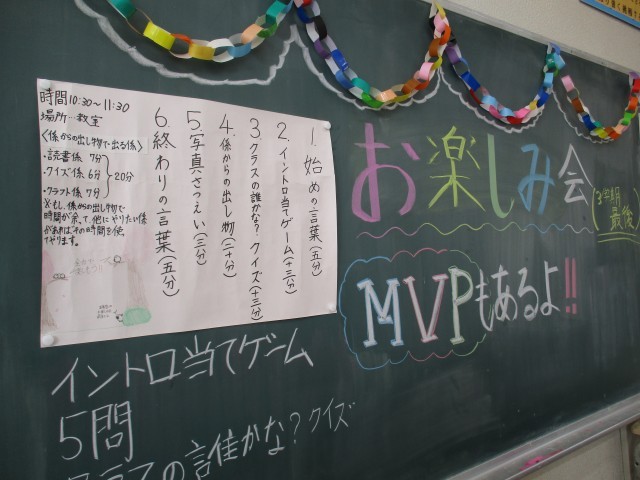 お楽しみ会
(3学期
最後)
MVPもあるよ!!
1. 始めの言葉(五分)
2. イントロ当てゲーム(十三分)
3. クラスの誰かな?クイズ(十三分)
4. 係からの出し物(二十分)
5. 写真さつえい(三分)
6. 終わりの言葉(五分)
時間10:30~11:30
場所…教室
〈係からの出し物で出る係〉
・読書係 7分
・クイズ係 6分
・クラフト係 7分
20分
※もし、係からの出し物で
時間が余って、他にやりたい係
があれば、その時間を使って
やります。
イントロ当てゲーム
5問
の誰かな?クイズ